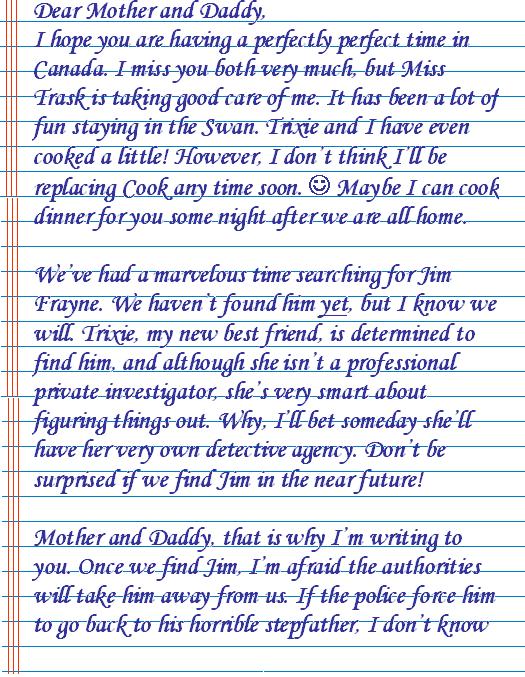 Dear Mother and Daddy,
I hope you are having a perfectly perfect time in
Canada. I miss you both very much, but Miss
Trask is taking good care of me. It has been a lot of
fun staying in the Swan. Trixie and I have even
cooked a little! However, I don't think I'll be
replacing Cook any time soon. ☺ Maybe I can cook
dinner for you some night after we are all home.

We've had a marvelous time searching for Jim
Frayne. We haven't found him yet, but I know we
will. Trixie, my new best friend, is determined to
find him, and although she isn't a professional
private investigator, she's very smart about
figuring things out. Why, I'll bet someday she'll
have her very own detective agency. Don't be
surprised if we find Jim in the near future!

Mother and Daddy, that is why I'm writing to
you. Once we find Jim, I'm afraid the authorities
will take him away from us. If the police force him
to go back to his horrible stepfather, I don't know